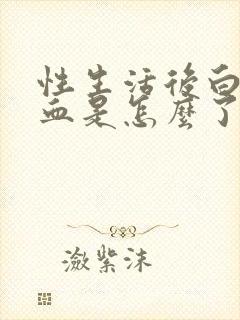 性生活後白
血是怎麼了
瀲紫沫